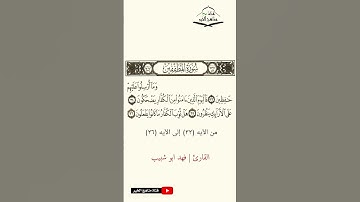 سُورَةُ المُطَفِّفِينَ
وَمَا أُرْسِلُوا عَلَيْهِمْ
حَافِظِينَ ٣٣ فَالْيَوْمَ الَّذِينَ آمَنُوا مِنَ الْكُفَّارِ يَضْحَكُونَ ٣٤
عَلَى الْأَرَائِكِ يَنظُرُونَ ٣٥ هَلْ ثُوِّبَ الْكُفَّارُ مَا كَانُوا يَفْعَلُونَ ٣٦
من الآيه (٣٣) إلى الآيه (٣٦)
القارئ | فهد ابو شبيب